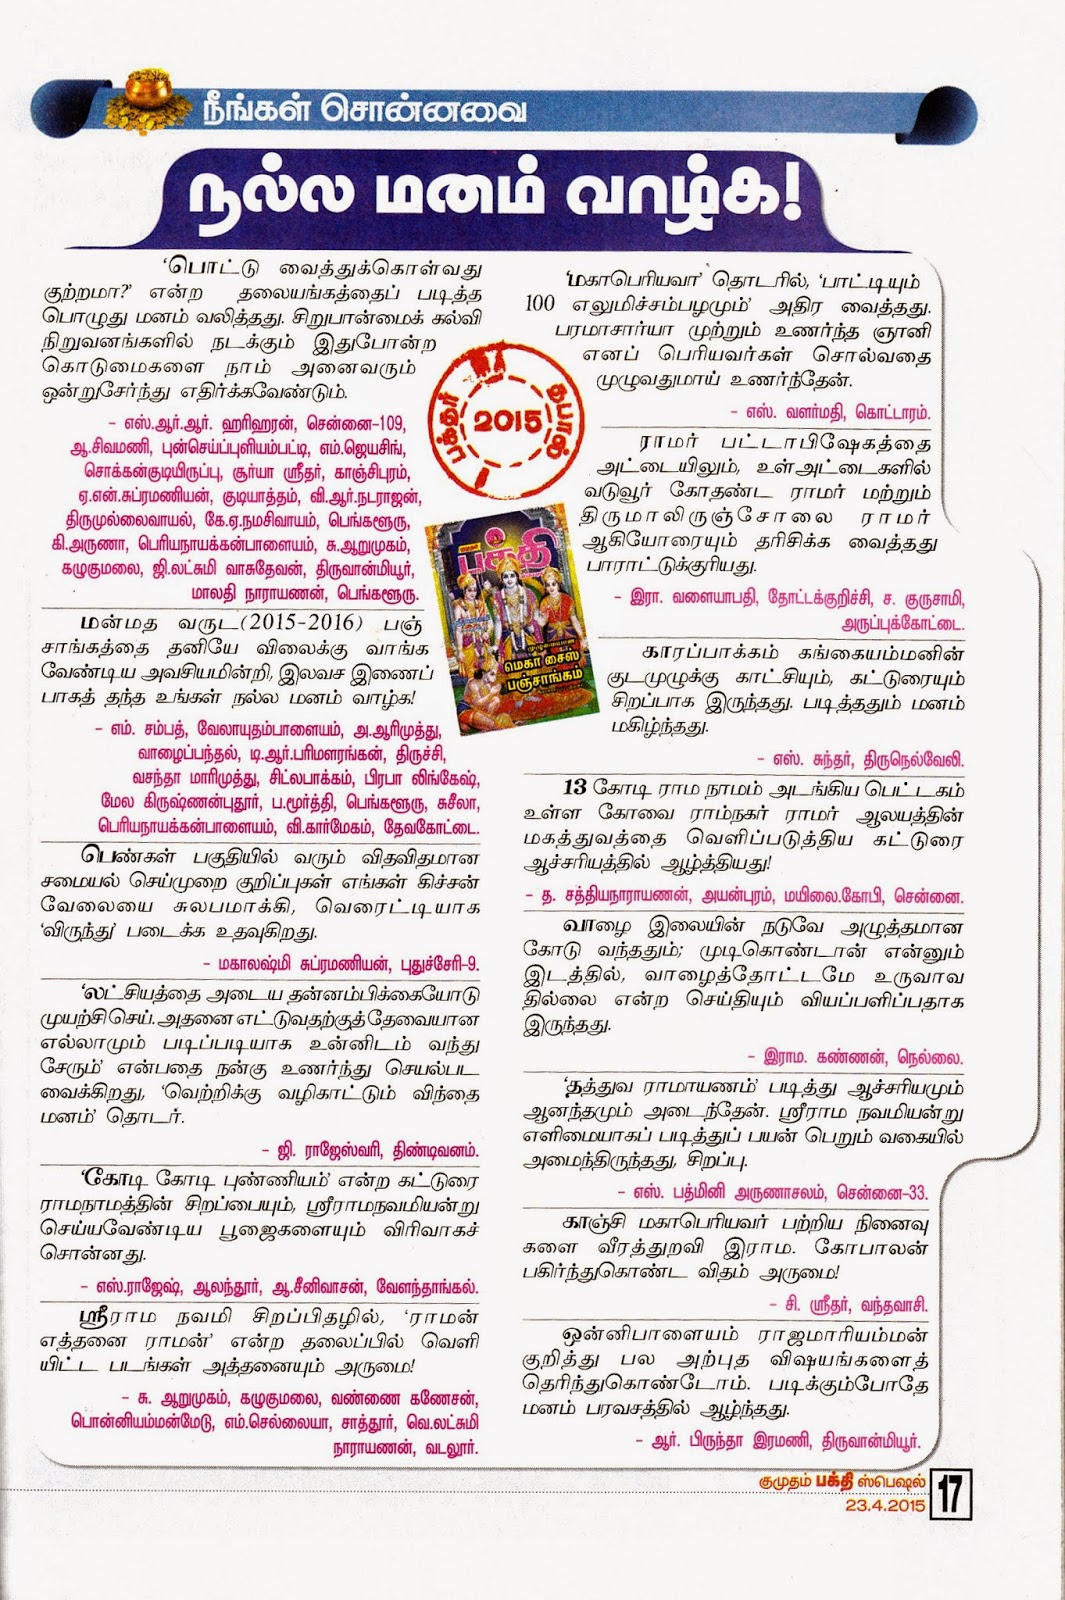 நீங்கள் சொன்னவை
நல்ல மனம் வாழ்க!
‘பொட்டு வைத்துக்கொள்வது
குற்றமா?’ என்ற தலையங்கத்தைப் படித்த
பொழுது மனம் வலித்தது. சிறுபான்மைக் கல்வி
நிறுவனங்களில் நடக்கும் இதுபோன்ற
கொடுமைகளை நாம் அனைவரும்
ஒன்றுசேர்ந்து எதிர்க்கவேண்டும்.
– எஸ்.ஆர்.ஆர். ஹரிஹரன், சென்னை–109,
ஆ.சிவமணி, புன்செய்ப்புளியம்பட்டி, எம்.ஜெயசிங்,
சொக்கன்குடியிருப்பு, சூர்யா ஸ்ரீதர், காஞ்சிபுரம்,
ஏ.என்.சுப்ரமணியன், குடியாத்தம், வி.ஆர்.நடராஜன்,
திருமுல்லைவாயல், கே.ஏ.நமசிவாயம், பெங்களூரு,
கி.அருணா, பெரியநாயக்கன்பாளையம், சு.ஆறுமுகம்,
கழுகுமலை, ஜி.லட்சுமி வாசுதேவன், திருவான்மியூர்,
மாலதி நாராயணன், பெங்களூரு.
மன்மத வருட(2015-2016) பஞ்
சாங்கத்தை தனியே விலைக்கு வாங்க
வேண்டிய அவசியமின்றி, இலவச இணைப்
பாகத் தந்த உங்கள் நல்ல மனம் வாழ்க!
– எம். சம்பத், வேலாயுதம்பாளையம், அ.ஆரிமுத்து,
வாழைப்பந்தல், டி.ஆர்.பரிமளரங்கன், திருச்சி,
வசந்தா மாரிமுத்து, சிட்லபாக்கம், பிரபா லிங்கேஷ்,
மேல கிருஷ்ணன்புதூர், ப.மூர்த்தி, பெங்களூரு, சுசீலா,
பெரியநாயக்கன்பாளையம், வி.கார்மேகம், தேவகோட்டை.
பெண்கள் பகுதியில் வரும் விதவிதமான
சமையல் செய்முறை குறிப்புகள் எங்கள் கிச்சன்
வேலையை சுலபமாக்கி, வெரைட்டியாக
‘விருந்து’ படைக்க உதவுகிறது.
– மகாலஷ்மி சுப்ரமணியன், புதுச்சேரி–9.
‘லட்சியத்தை அடைய தன்னம்பிக்கையோடு
முயற்சிசெய். அதனை எட்டுவதற்குத்தேவையான
எல்லாமும் படிப்படியாக உன்னிடம் வந்து
சேரும்’ என்பதை நன்கு உணர்ந்து செயல்பட
வைக்கிறது, ‘வெற்றிக்கு வழிகாட்டும் விந்தை
மனம்’ தொடர்.
– ஜி. ராஜேஸ்வரி, திண்டிவனம்.
‘கோடி கோடி புண்ணியம்’ என்ற கட்டுரை
ராமநாமத்தின் சிறப்பையும், ஸ்ரீராமநவமியன்று
செய்யவேண்டிய பூஜைகளையும் விரிவாகச்
சொன்னது.
– எஸ்.ராஜேஷ், ஆலந்தூர், ஆ.சீனிவாசன், வேளந்தாங்கல்.
ஸ்ரீராம நவமி சிறப்பிதழில், ‘ராமன்
எத்தனை ராமன்’ என்ற தலைப்பில் வெளி
யிட்ட படங்கள் அத்தனையும் அருமை!
– சு. ஆறுமுகம், கழுகுமலை, வண்ணை கணேசன்,
பொன்னியம்மன்மேடு, எம்.செல்லையா, சாத்தூர், வெ.லட்சுமி
நாராயணன், வடலூர்.
பக்தர் கபால்
2015
பக்தி
மெகா சைஸ்
பஞ்சாங்கம்
‘மகாபெரியவா’ தொடரில், ‘பாட்டியும்
100 எலுமிச்சம்பழமும்’ அதிர வைத்தது.
பரமாசார்யா முற்றும் உணர்ந்த ஞானி
எனப் பெரியவர்கள் சொல்வதை
முழுவதுமாய் உணர்ந்தேன்.
– எஸ். வளர்மதி, கொட்டாரம்.
ராமர் பட்டாபிஷேகத்தை
அட்டையிலும், உள்அட்டைகளில்
வடுவூர் கோதண்ட ராமர் மற்றும்
திருமாலிருஞ்சோலை ராமர்
ஆகியோரையும் தரிசிக்க வைத்தது
பாராட்டுக்குரியது.
– இரா. வளையாபதி, தோட்டக்குறிச்சி, ச. குருசாமி,
அருப்புக்கோட்டை.
காரப்பாக்கம் கங்கையம்மனின்
குடமுழுக்கு காட்சியும், கட்டுரையும்
சிறப்பாக இருந்தது. படித்ததும் மனம்
மகிழ்ந்தது.
– எஸ். சுந்தர், திருநெல்வேலி.
13 கோடி ராம நாமம் அடங்கிய பெட்டகம்
உள்ள கோவை ராம்நகர் ராமர் ஆலயத்தின்
மகத்துவத்தை வெளிப்படுத்திய கட்டுரை
ஆச்சரியத்தில் ஆழ்த்தியது!
– த. சத்தியநாராயணன், அயன்புரம், மயிலை.கோபி, சென்னை.
வாழை இலையின் நடுவே அழுத்தமான
கோடு வந்ததும்; முடிகொண்டான் என்னும்
இடத்தில், வாழைத்தோட்டமே உருவாவ
தில்லை என்ற செய்தியும் வியப்பளிப்பதாக
இருந்தது.
– இராம. கண்ணன், நெல்லை.
‘தத்துவ ராமாயணம்’ படித்து ஆச்சரியமும்
ஆனந்தமும் அடைந்தேன். ஸ்ரீராம நவமியன்று
எளிமையாகப் படித்துப் பயன் பெறும் வகையில்
அமைந்திருந்தது, சிறப்பு.
– எஸ். பத்மினி அருணாசலம், சென்னை–33.
காஞ்சி மகாபெரியவர் பற்றிய நினைவு
களை வீரத்துறவி இராம. கோபாலன்
பகிர்ந்துகொண்ட விதம் அருமை!
– சி. ஸ்ரீதர், வந்தவாசி.
ஒன்னிபாளையம் ராஜமாரியம்மன்
குறித்து பல அற்புத விஷயங்களைத்
தெரிந்துகொண்டோம். படிக்கும்போதே
மனம் பரவசத்தில் ஆழ்ந்தது.
– ஆர். பிருந்தா இரமணி, திருவான்மியூர்.
குமுதம் பக்தி ஸ்பெஷல்
23.4.2015
17